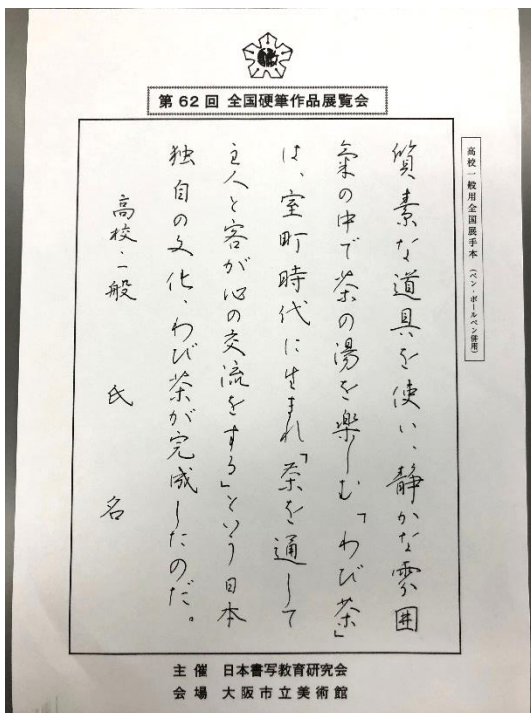 第62回 全国硬筆作品展覧会
高校一般用全国展手本（ペン・ボールペン併用）
質素な道具を使い、静かな雰囲
氣の中で茶の湯を楽しむ「わび茶」
は、室町時代に生まれ「茶を通して
主人と客が心の交流をする」という日本
独自の文化、わび茶が完成したのだ。
高校・一般 氏名
主催 日本書写教育研究会
会場 大阪市立美術館